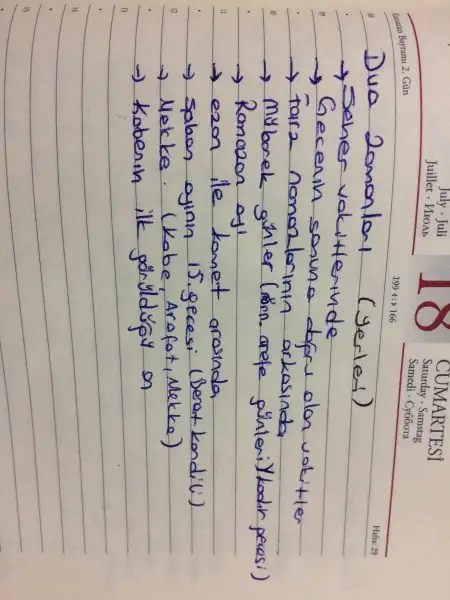 July · Juli
Juillet · Июль
18
CUMARTESİ
Saturday · Samstag
Samedi · Суббота
Ramazan Bayramı 2. Gün
199 166
Hafta: 29
08
Dua Zamanları (yerleri)
→ Seher vakitlerinde
09
→ Gecenin sonuna doğru olan vakitler
→ Farz namazlarının arkasında
10
→ Mübarek günler ( arefe günleri) kadir gecesi)
→ Ramazan ayı
11
→ ezan ile kamet arasında
→ Şaban ayının 15. gecesi (Berat kandili)
12
→ Mekke. (Kabe, Arafat, Mekke)
→ Kabenin ilk görüldüğü an
13
14
15